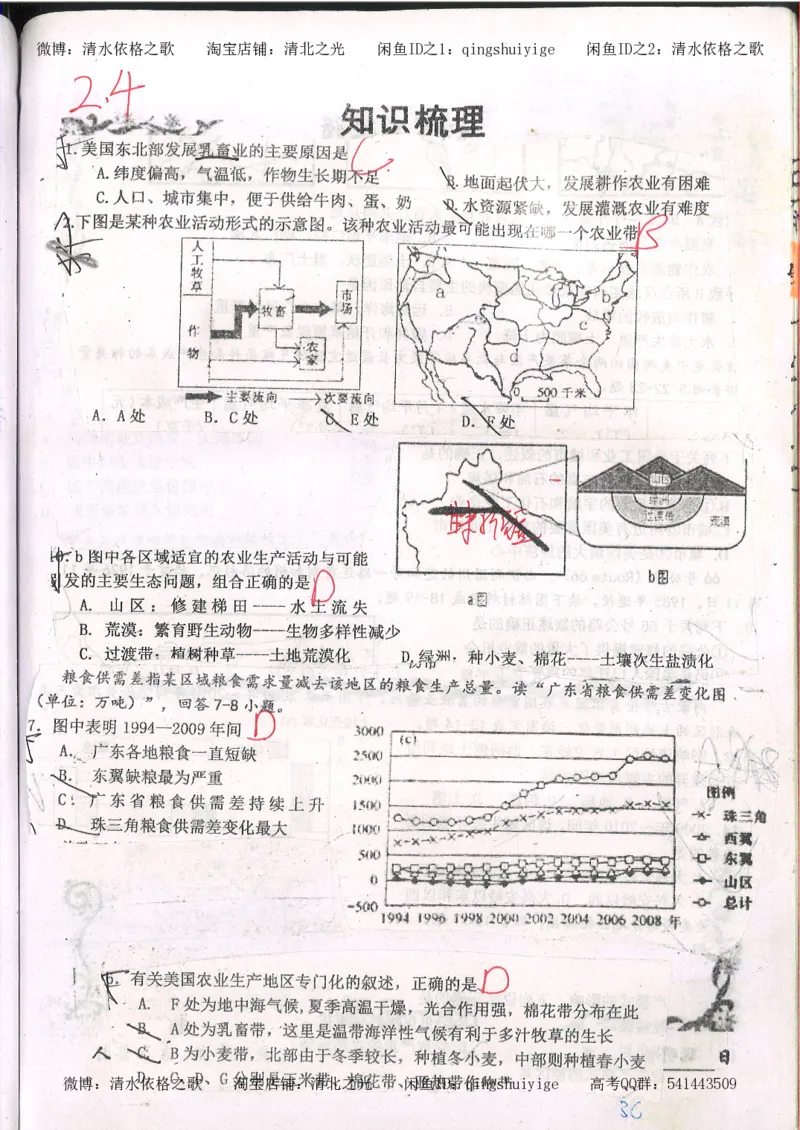 微博：清水依格之歌 淘宝店铺：清北之光 闲鱼ID之1：qingshuiyige 闲鱼ID之2：清水依格之歌
2.4
知识梳理
1.美国东北部发展乳畜业的主要原因是 C
A.纬度偏高，气温低，作物生长期不足 B.地面起伏大，发展耕作农业有困难
C.人口、城市集中，便于供给牛肉、蛋、奶 D.水资源紧缺，发展灌溉农业有难度
2.下图是某种农业活动形式的示意图。该种农业活动最可能出现在哪一个农业带 B
人工牧草
作物
牧畜
市场
农家
主要流向 次要流向
a
b
c
d
0 500千米
A．A处 B．C处 C．E处 D．F处
山区
绿洲
过渡带
荒漠
a图
b图
b图中各区域适宜的农业生产活动与可能
发的主要生态问题，组合正确的是 D
A. 山区：修建梯田----水土流失
B. 荒漠：繁育野生动物----生物多样性减少
C. 过渡带：植树种草----土地荒漠化 D.绿洲，种小麦、棉花----土壤次生盐渍化
粮食供需差指某区域粮食需求量减去该地区的粮食生产总量。读“广东省粮食供需差变化图
（单位：万吨）”，回答7-8小题。
7. 图中表明1994—2009年间 D
A. 广东各地粮食一直短缺
B. 东翼缺粮最为严重
C. 广东省粮食供需差持续上升
D. 珠三角粮食供需差变化最大
(c)
3000
2500
2000
1500
1000
500
0
-500
1994 1996 1998 2000 2002 2004 2006 2008 年
图例
珠三角
西翼
东翼
山区
总计
有关美国农业生产地区专门化的叙述，正确的是 D
A. F处为地中海气候,夏季高温干燥，光合作用强，棉花带分布在此
B. A处为乳畜带，这里是温带海洋性气候有利于多汁牧草的生长
C. B为小麦带，北部由于冬季较长，种植冬小麦，中部则种植春小麦
日
微博：清水依格之歌 淘宝店铺：清北之光 闲鱼ID：qingshuiyige 高考QQ群：541443509